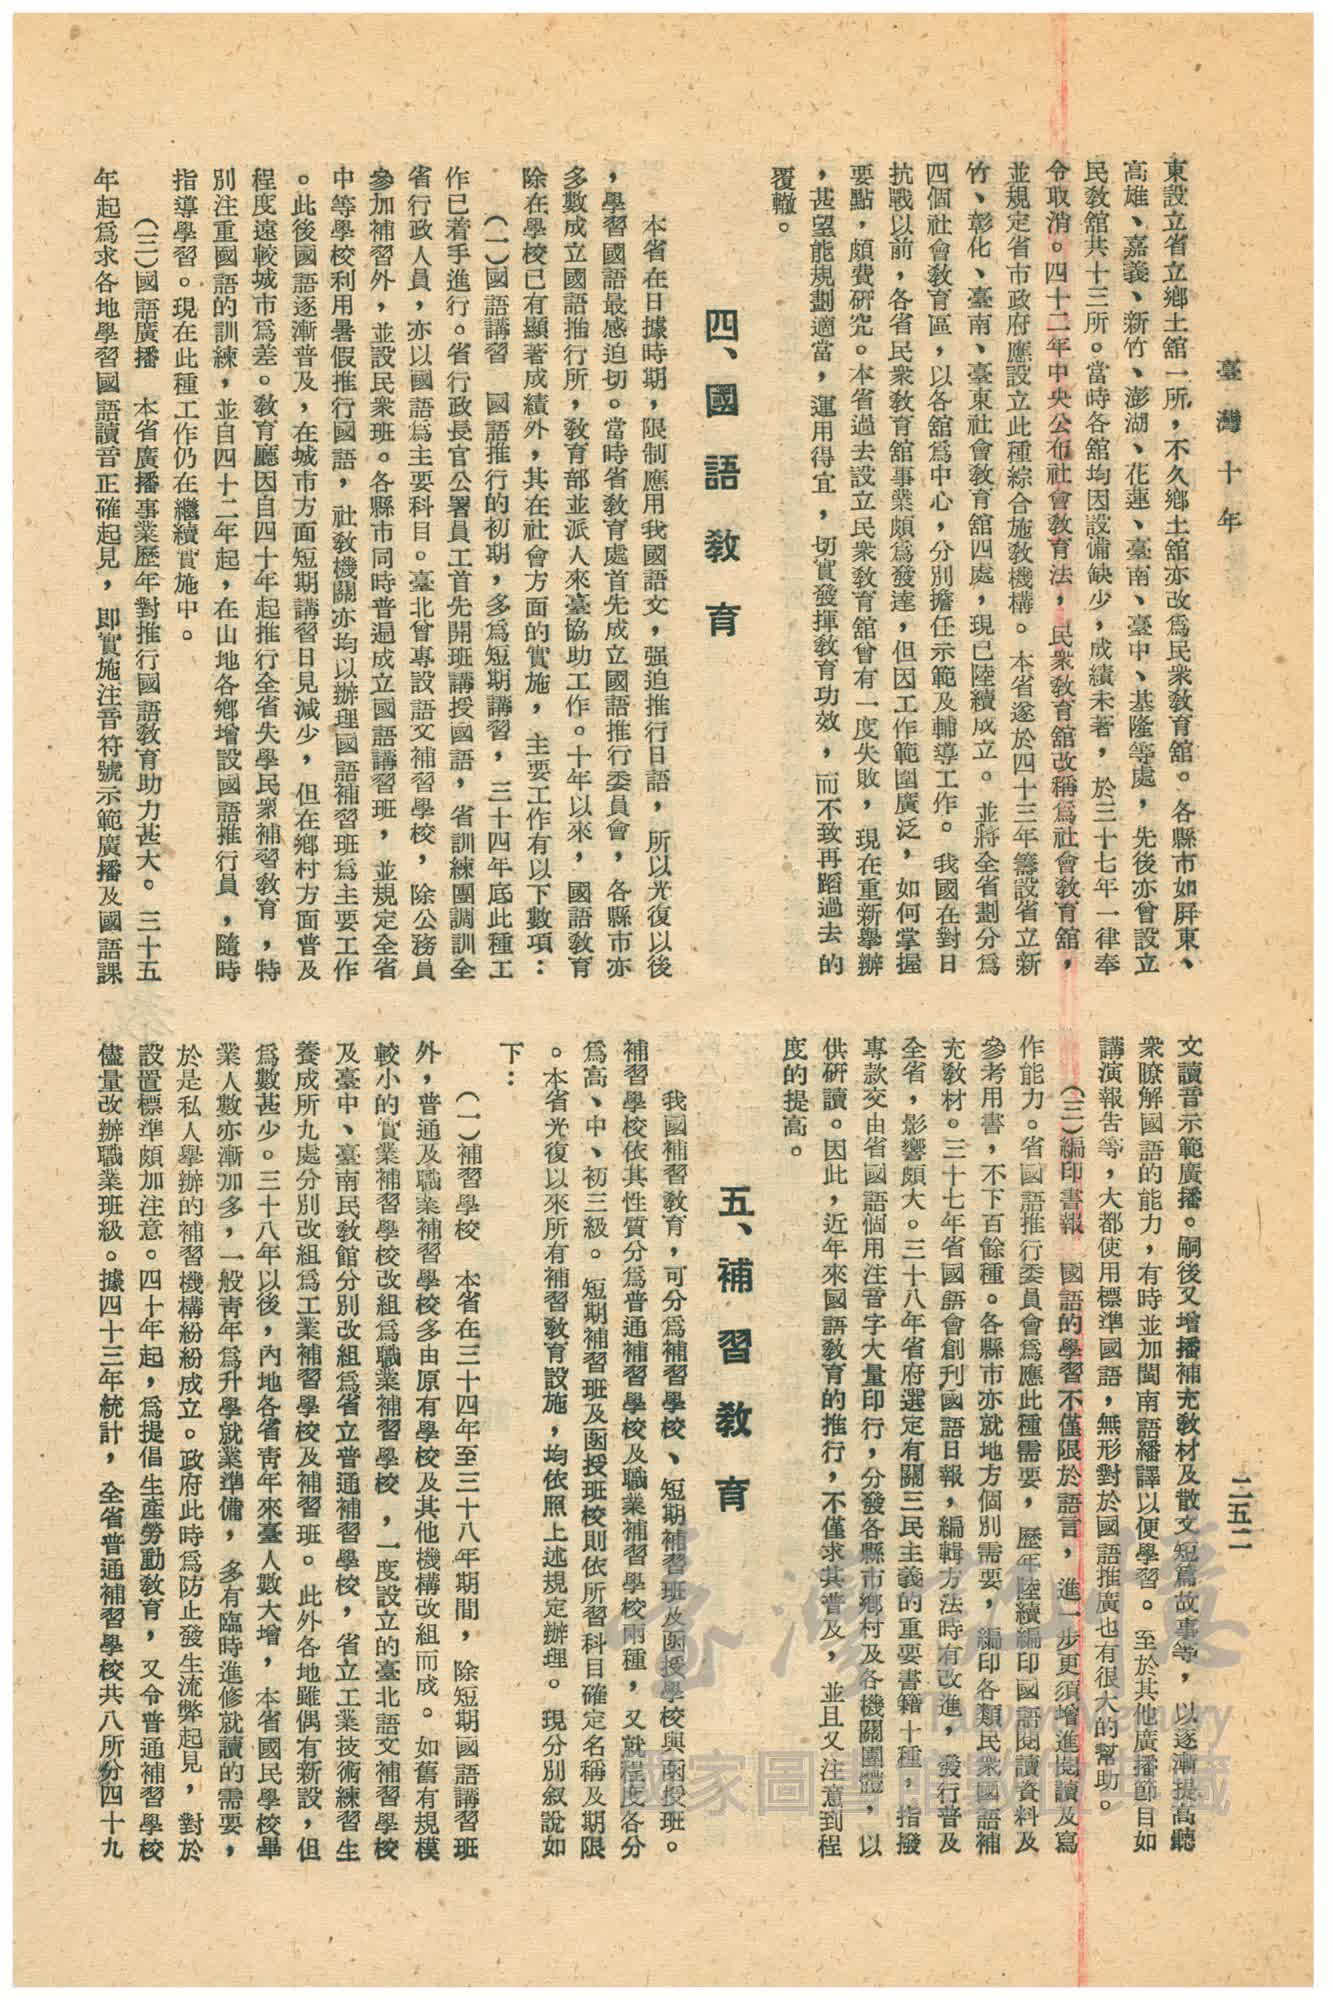 臺灣十年
二五二
東設立省立鄉土舘一所，不久鄉土舘亦改爲民衆敎育舘。各縣市如屏東、
高雄、嘉義、新竹、澎湖、花蓮、臺南、臺中、基隆等處，先後亦曾設立
民敎舘共十三所。當時各舘均因設備缺少，成績未著，於三十七年一律奉
令取消。四十二年中央公布社會敎育法，民衆敎育舘改稱爲社會敎育舘，
並規定省市政府應設立此種綜合施敎機構。本省遂於四十三年籌設省立新
竹、彰化、臺南、臺東社會敎育舘四處，現已陸續成立。並將全省劃分爲
四個社會敎育區，以各舘爲中心，分別擔任示範及輔導工作。我國在對日
抗戰以前，各省民衆敎育舘事業頗爲發達，但因工作範圍廣泛，如何掌握
要點，頗費硏究。本省過去設立民衆敎育舘曾有一度失敗，現在重新舉辦
，甚望能規劃適當，運用得宜，切實發揮敎育功效，而不致再蹈過去的
覆轍。
四、國語敎育
本省在日據時期，限制應用我國語文，强迫推行日語，所以光復以後
，學習國語最感迫切。當時省敎育處首先成立國語推行委員會，各縣市亦
多數成立國語推行所，敎育部並派人來臺協助工作。十年以來，國語敎育
除在學校已有顯著成績外，其在社會方面的實施，主要工作有以下數項：
（一）國語講習　國語推行的初期，多爲短期講習，三十四年底此種工
作已着手進行。省行政長官公署員工首先開班講授國語，省訓練團調訓全
省行政人員，亦以國語爲主要科目。臺北曾專設語文補習學校，除公務員
參加補習外，並設民衆班。各縣市同時普遍成立國語講習班，並規定全省
中等學校利用暑假推行國語，社敎機關亦均以辦理國語補習班爲主要工作
。此後國語逐漸普及，在城市方面短期講習日見減少，但在鄉村方面普及
程度遠較城市爲差。敎育廳因自四十年起推行全省失學民衆補習敎育，特
別注重國語的訓練，並自四十二年起，在山地各鄉增設國語推行員，隨時
指導學習。現在此種工作仍在繼續實施中。
（二）國語廣播　本省廣播事業歷年對推行國語敎育助力甚大。三十五
年起爲求各地學習國語讀音正確起見，卽實施注音符號示範廣播及國語課
文讀音示範廣播。嗣後又增播補充敎材及散文短篇故事等，以逐漸提高聽
衆瞭解國語的能力，有時並加閩南語繙譯以便學習。至於其他廣播節目如
講演報告等，大都使用標準國語，無形對於國語推廣也有很大的幫助。
（三）編印書報　國語的學習不僅限於語言，進一步更須增進閱讀及寫
作能力。省國語推行委員會爲應此種需要，歷年陸續編印國語閱讀資料及
參考用書，不下百餘種。各縣市亦就地方個別需要，編印各類民衆國語補
充敎材。三十七年省國語會創刊國語日報，編輯方法時有改進，發行普及
全省，影響頗大。三十八年省府選定有關三民主義的重要書籍十種，指撥
專款交由省國語個用注音字大量印行，分發各縣市鄉村及各機關團體，以
供硏讀。因此，近年來國語敎育的推行，不僅求其普及，並且又注意到程
度的提高。
五、補習敎育
我國補習敎育，可分爲補習學校、短期補習班及函授學校與函授班。
補習學校依其性質分爲普通補習學校及職業補習學校兩種，又就程度各分
爲高、中、初三級。短期補習班及函授班校則依所習科目確定名稱及期限
。本省光復以來所有補習敎育設施，均依照上述規定辦理。現分別叙說如
下：
（一）補習學校　本省在三十四年至三十八年期間，除短期國語講習班
外，普通及職業補習學校多由原有學校及其他機構改組而成。如舊有規模
較小的實業補習學校改組爲職業補習學校，一度設立的臺北語文補習學校
及臺中、臺南民敎館分別改組爲省立普通補習學校，省立工業技術練習生
養成所九處分別改組爲工業補習學校及補習班。此外各地雖偶有新設，但
爲數甚少。三十八年以後，內地各省靑年來臺人數大增，本省國民學校畢
業人數亦漸加多，一般靑年爲升學就業準備，多有臨時進修就讀的需要，
於是私人舉辦的補習機構紛紛成立。政府此時爲防止發生流弊起見，對於
設置標準頗加注意。四十年起，爲提倡生產勞動敎育，又令普通補習學校
儘量改辦職業班級。據四十三年統計，全省普通補習學校共八所分四十九
臺灣記憶
Taiwan Memory
國家圖書館數位典藏